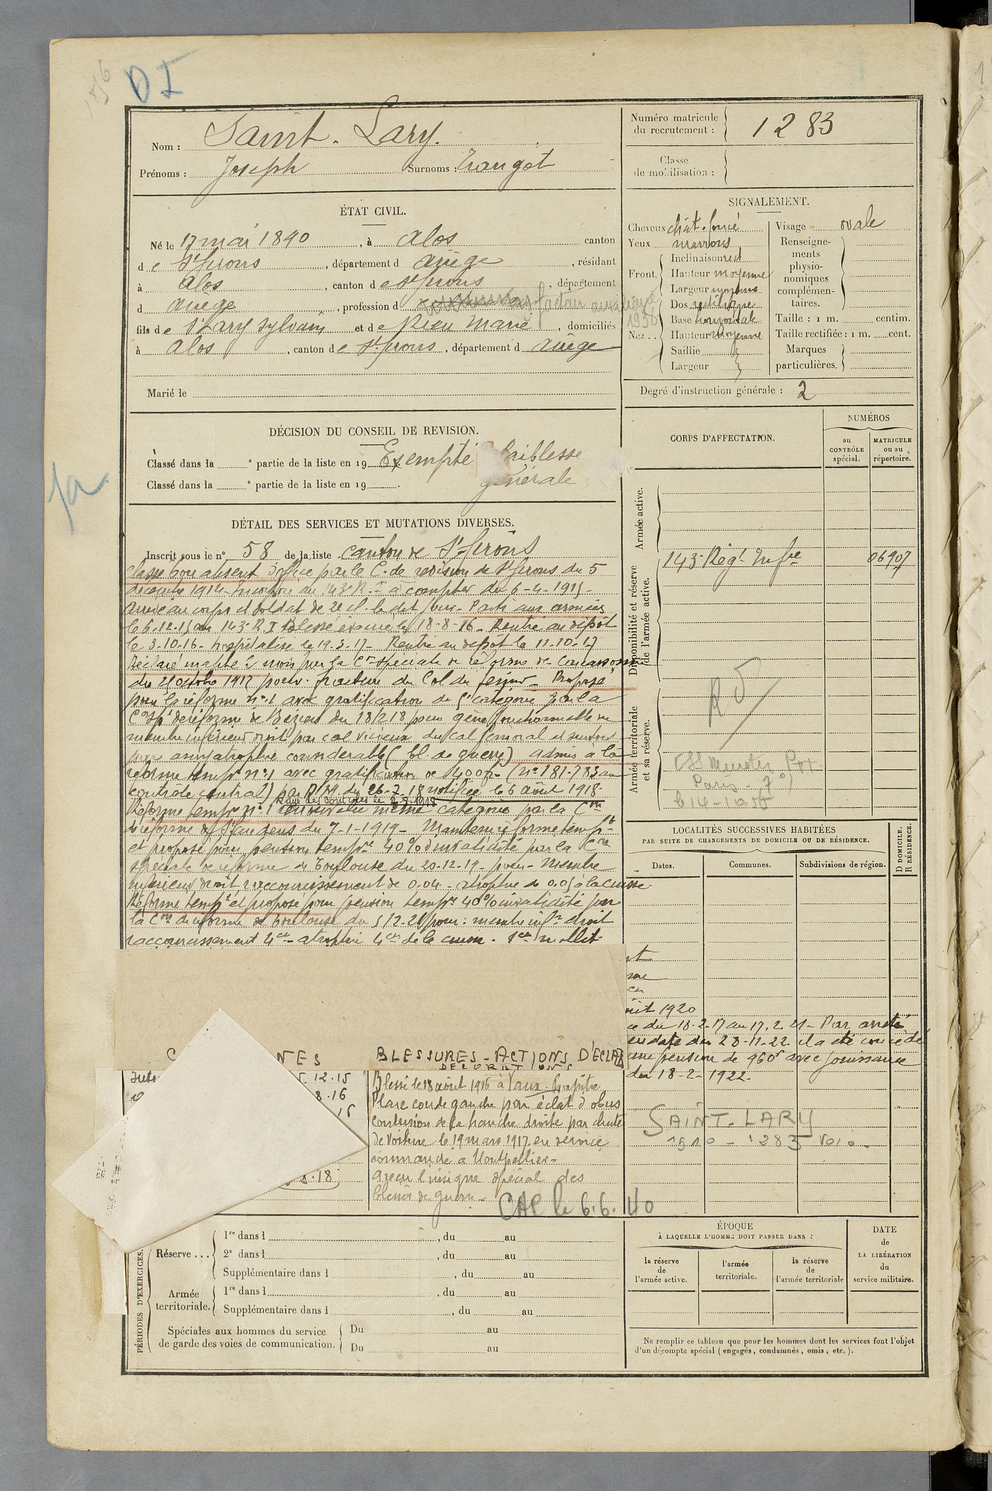 D I
Nom : Saint-Lary.
Prénoms : Joseph Surnoms :
Numéro matricule
du recrutement : 1283
Classe
de mobilisation :
ÉTAT CIVIL.
Né le 17 mai 1890, à Alos canton
de St Girons, département d Ariège, résidant
à Alos, canton de St Girons, département
d Ariège, profession de facteur auxiliaire
1930
fils de St Lary Sylvain et de Rieu Marie, domiciliés
à Alos, canton de St Girons, département d Ariège
Marié le
SIGNALEMENT.
Cheveux chât. foncé
Yeux marrons
Front. Inclinaison
Hauteur moyenne
Largeur moyenne
Nez.. Dos rectiligne
Base horizontale
Hauteur moyenne
Saillie
Largeur
Visage ovale
Renseigne-
ments
physio-
nomiques
complémen-
taires.
Taille : 1 m. centim.
Taille rectifiée : 1 m. cent.
Marques
particulières.
Degré d'instruction générale : 2
DÉCISION DU CONSEIL DE REVISION.
Classé dans la e partie de la liste en 19 Exempté faiblesse
Classé dans la e partie de la liste en 19 . générale
DÉTAIL DES SERVICES ET MUTATIONS DIVERSES.
Inscrit sous le n° 58 de la liste canton de St Girons
Classé bon absent d'office par le C. de revision de St Girons du 5
décembre 1914. Incorporé au R.I. à compter du 6-4-1915
Arrivé au corps et soldat de 2e cl. le dit jour. Parti aux armées
le 6.12.15 au 143 R.I Blessé évacué le 18-8-16. Rentré au dépôt
le 3-10-16. hospitalisé le 19.3.17. Rentré au dépôt le 11-10-17
Déclaré inapte 2 mois par la Con spéciale de réforme de Carcassonne
du 21 octobre 1917 pour fracture du Col du femur. Proposé
pour la réforme n° 1 avec gratification de catégorie par la
Con Spé de réforme de Béziers du 18/2/18 pour gêne fonctionnelle du
membre inférieur droit par cal vicieux du col femoral et surtout
par amyotrophie considérable (bl. de guerre) admis à la
réforme tempre n° 1 avec gratification de (n° 181.783 au
contrôle central) par D.M du 26-7-18 notifiée le 6 août 1918.
Rayé des contrôles le
Réformé tempre n° 1 même catégorie par la Con
de réforme de St Gaudens du 7-1-1919. Maintenu réformé tempre
et proposé pour pension tempre 40% d'invalidité par la Con
spéciale de réforme de Toulouse du 20-12-19 pour : Membre
inférieur droit, raccourcissement de 0.04. atrophie de 0.05 à la cuisse
Réformé tempre et proposé pour pension tempre 40% invalidité par
la Con de réforme de Toulouse du pour : membre infr droit
raccourcissement 4cm atrophie 4cm de la cuisse. 1cm mollet
CORPS D'AFFECTATION.
NUMÉROS
au
CONTRÔLE
spécial.
MATRICULE
ou au
répertoire.
Armée active.
Disponibilité et réserve
de l'armée active.
143e Régt Infie 06907
Armée territoriale
et sa réserve.
Paris
LOCALITÉS SUCCESSIVES HABITÉES
PAR SUITE DE CHANGEMENTS DE DOMICILE OU DE RÉSIDENCE.
Dates. Communes. Subdivisions de région.
D DOMICILE.
R RÉSIDENCE.
1920
du 18-2-17 au 17.2.21- Par arrêté
en date du 28-11-22 il a été concédé
une pension de 960f avec jouissance
du 18-2-1922.
SAINT-LARY
1910 - 1283
BLESSURES - ACTIONS D'ÉCLAT
DÉCORATIONS
Blessé le 18 août 1916 à Vaux-Chapitre
Plaie coude gauche par éclat d'obus
Contusion de la hanche droite par chute
de voiture le 19 mars 1917 en service
commandé à Montpellier-
A reçu l'insigne spécial des
blessés de guerre.
12.15
8.16
8.18
6.6.40
PÉRIODES D'EXERCICES.
Réserve ... 1re dans l , du au
2e dans l , du au
Supplémentaire dans l , du au
Armée
territoriale. 1re dans l , du au
Supplémentaire dans l , du au
Spéciales aux hommes du service
de garde des voies de communication. Du au
Du au
ÉPOQUE
À LAQUELLE L'HOMME DOIT PASSER DANS :
la réserve
de
l'armée active.
l'armée
territoriale.
la réserve
de
l'armée territoriale
DATE
de
LA LIBÉRATION
du
service militaire.
Ne remplir ce tableau que pour les hommes dont les services font l'objet
d'un décompte spécial (engagés, condamnés, omis, etc.).